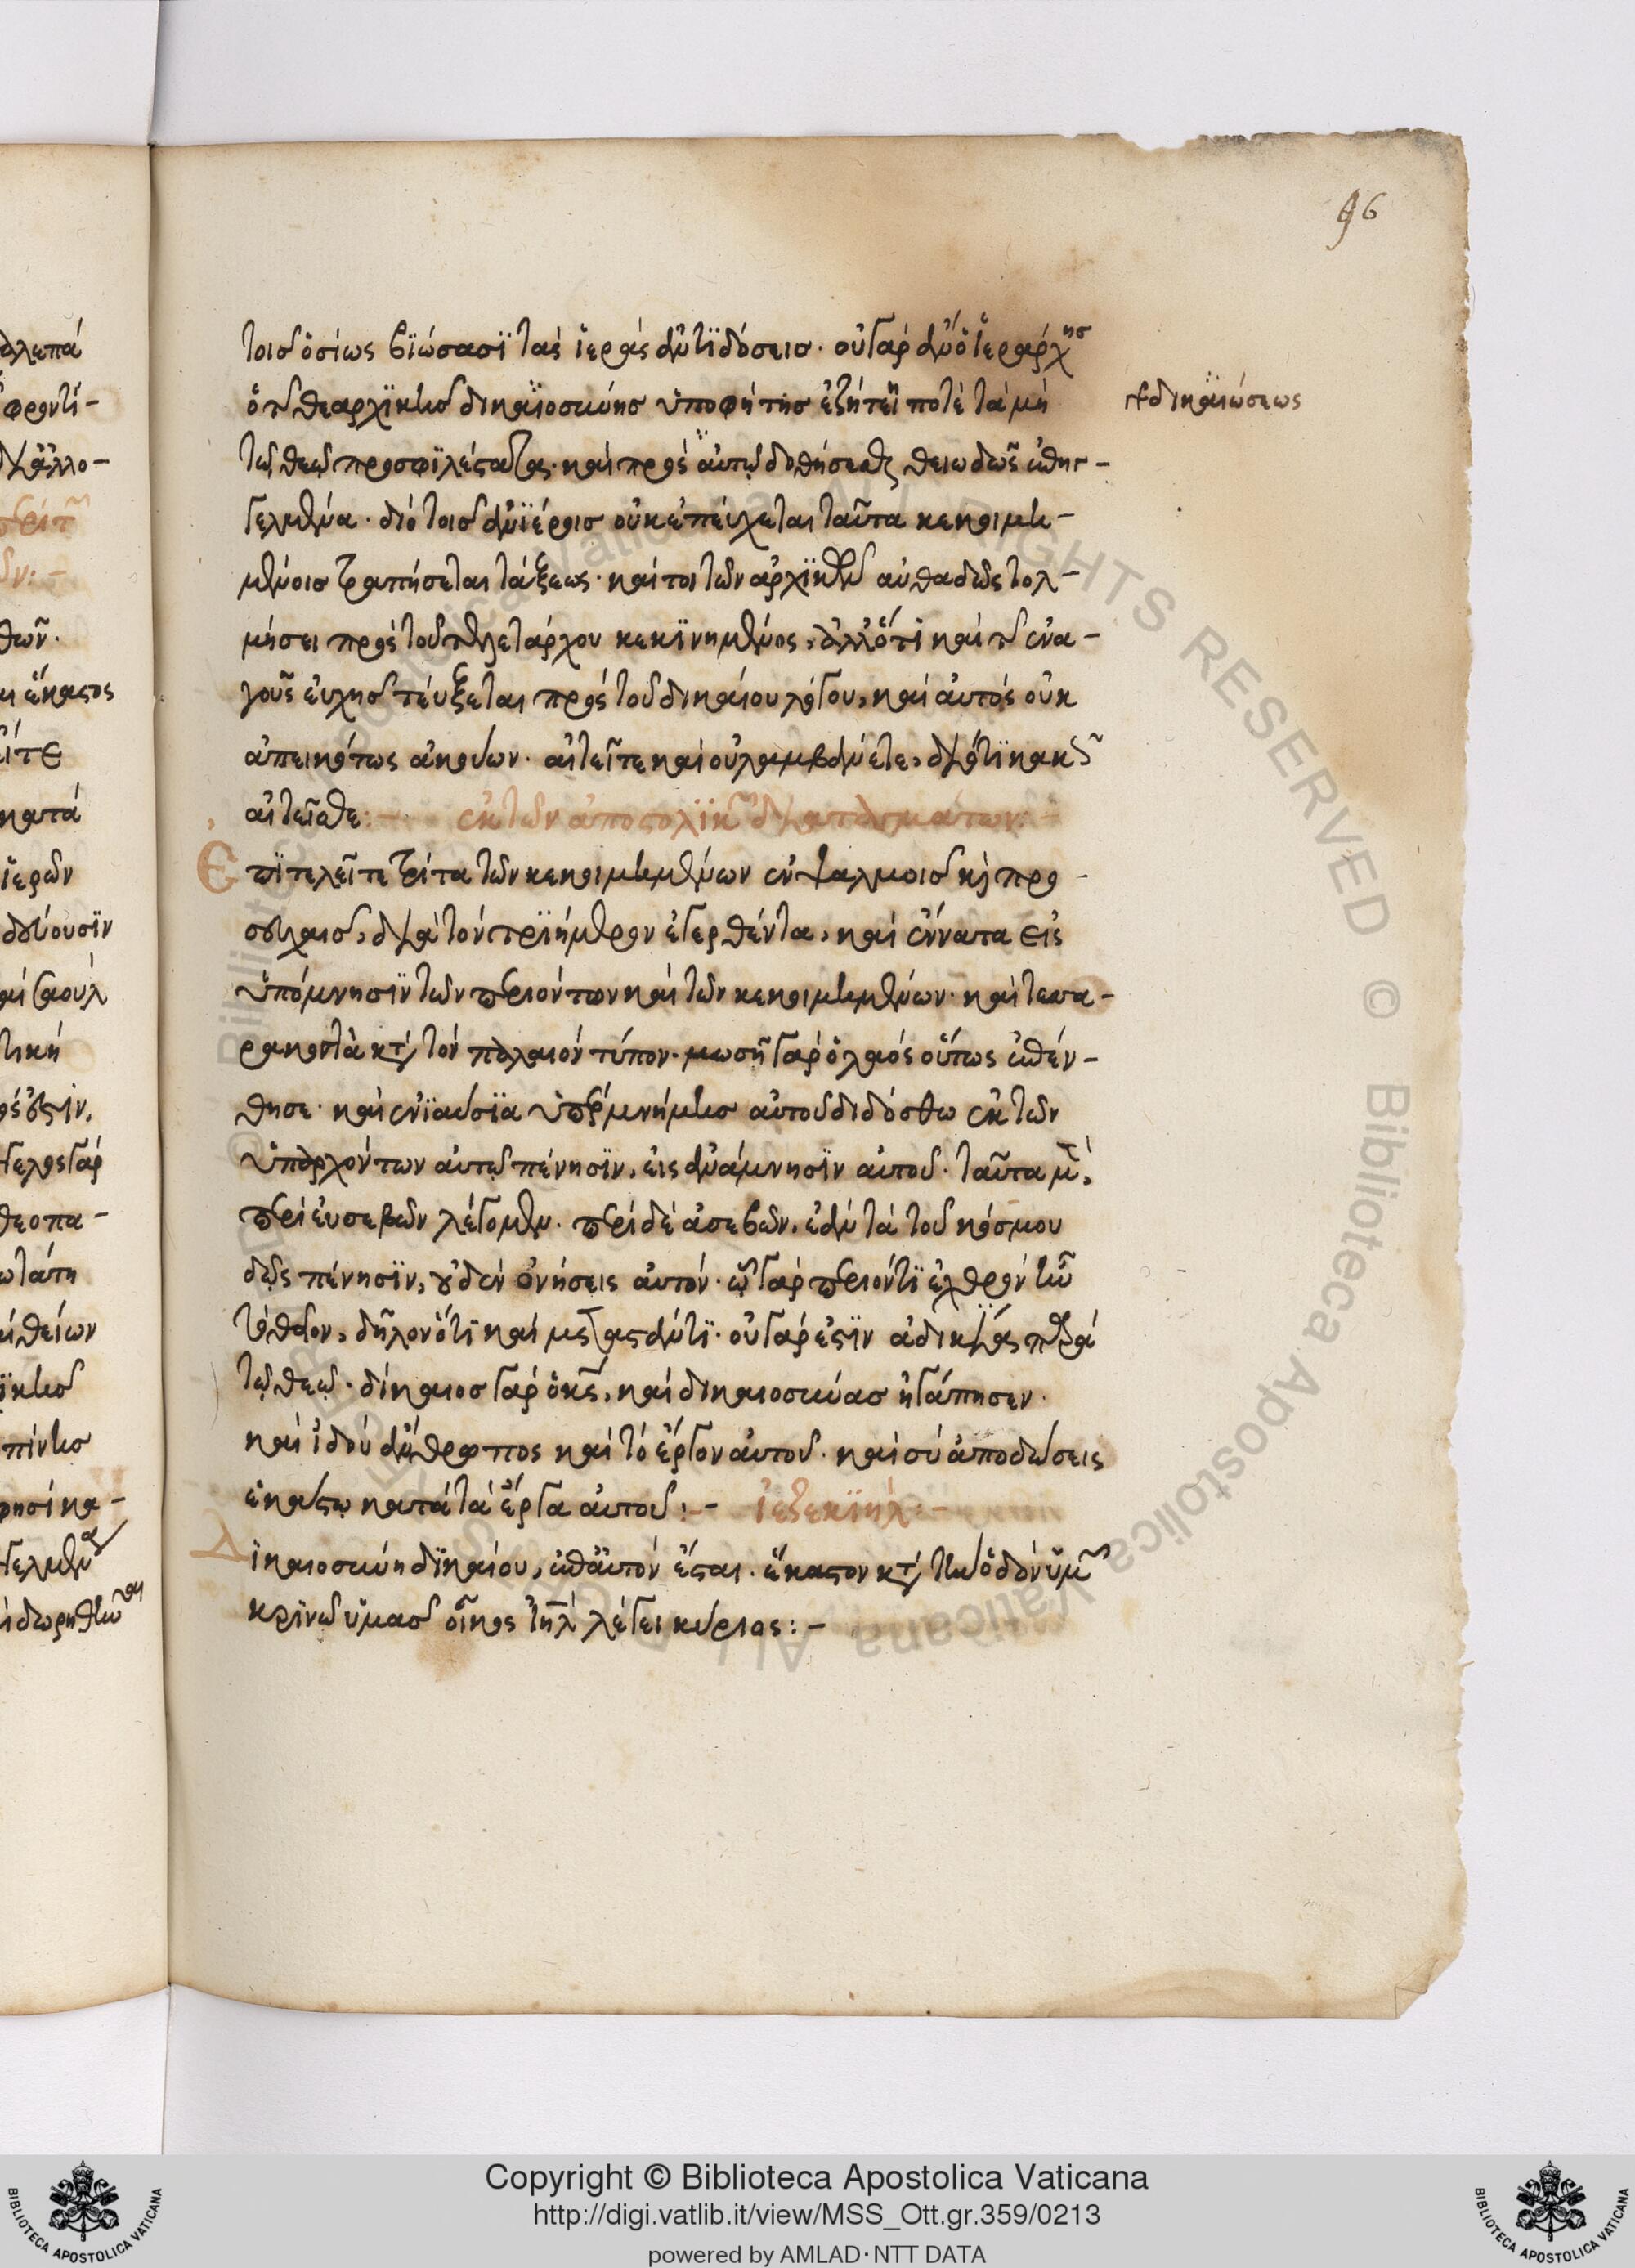 96
τοῖς ὁσίως βιώσασι τὰς ἱερὰς ἀντιδόσεις. οὐ γὰρ ἂν ὁ ἱεράρχης
ὁ τῆς θεαρχικῆς δικαιοσύνης ὑποφήτης ἐζήτει ποτὲ τὰ μὴ
τῆς δικαιώσεως
τῷ θεῷ προσφιλέστατα. καὶ πρὸς αὐτοῦ δοθήσεσθαι θειωδῶς ἐπηγ-
γελμένα. διὸ τοῖς ἀνιέροις οὐκ ἐπεύχεται ταῦτα κεκοιμη-
μένοις τραπήσεται τάξεως. καί τοι τῶν ἀρχικῶν αὐθαδῶς τολ-
μήσει πρὸς τοῦ τελετάρχου κεκινημένος, ἀλλ' ὅτι καὶ τῆς ἐνα-
γοῦς εὐχῆς τεύξεται πρὸς τοῦ δικαίου λόγου, καὶ αὐτὸς οὐκ
ἀπεικότως ἀκούων. αἰτεῖτε καὶ οὐ λαμβάνετε, διότι κακῶς
αἰτεῖσθε:- ἐκ τῶν ἀποστολικῶν διαταγμάτων:-
Ἐπιτελεῖτε τρίτα τῶν κεκοιμημένων ἐν ψαλμοῖς καὶ προ
σευχαῖς, διὰ τὸν τριήμερον ἐγερθέντα, καὶ ἔννατα εἰς
ὑπόμνησιν τῶν περιόντων καὶ τῶν κεκοιμημένων. καὶ τεσσα-
ρακοστὰ κατὰ τὸν παλαιὸν τύπον. μωσῆν γὰρ ὁ λαὸς οὕτως ἐπέν-
θησε. καὶ ἐνιαύσια ὑπὲρ μνήμης αὐτοῦ διδόσθω ἐκ τῶν
ὑπαρχόντων αὐτοῦ πένησιν, εἰς ἀνάμνησιν αὐτοῦ. ταῦτα μὲν
περὶ εὐσεβῶν λέγομεν. περὶ δὲ ἀσεβῶν, ἐὰν τὰ τοῦ κόσμου
δῷς πένησιν, οὐδὲν ὀνήσεις αὐτόν. ᾧ γὰρ περιόντι ἐχθρὸν ἦν
τὸ θεῖον, δῆλον ὅτι καὶ μεταστάντι. οὐ γὰρ ἔστιν ἀδικία παρὰ
τῷ θεῷ. δίκαιος γὰρ ὁ κς, καὶ δικαιοσύνας ἠγάπησεν.
καὶ ἰδοὺ ἄνθρωπος καὶ τὸ ἔργον αὐτοῦ. καὶ σὺ ἀποδώσεις
ἑκάστῳ κατὰ τὰ ἔργα αὐτοῦ:- ἰεζεκιήλ:-
Δικαιοσύνη δικαίου, ἐπ' αὐτὸν ἔσται. ἕκαστον κατὰ τὴν ὁδὸν ὑμῶν
κρινῶ ὑμᾶς οἶκος ἰηλ λέγει κύριος:-
Copyright © Biblioteca Apostolica Vaticana
http://digi.vatlib.it/view/MSS_Ott.gr.359/0213
powered by AMLAD·NTT DATA